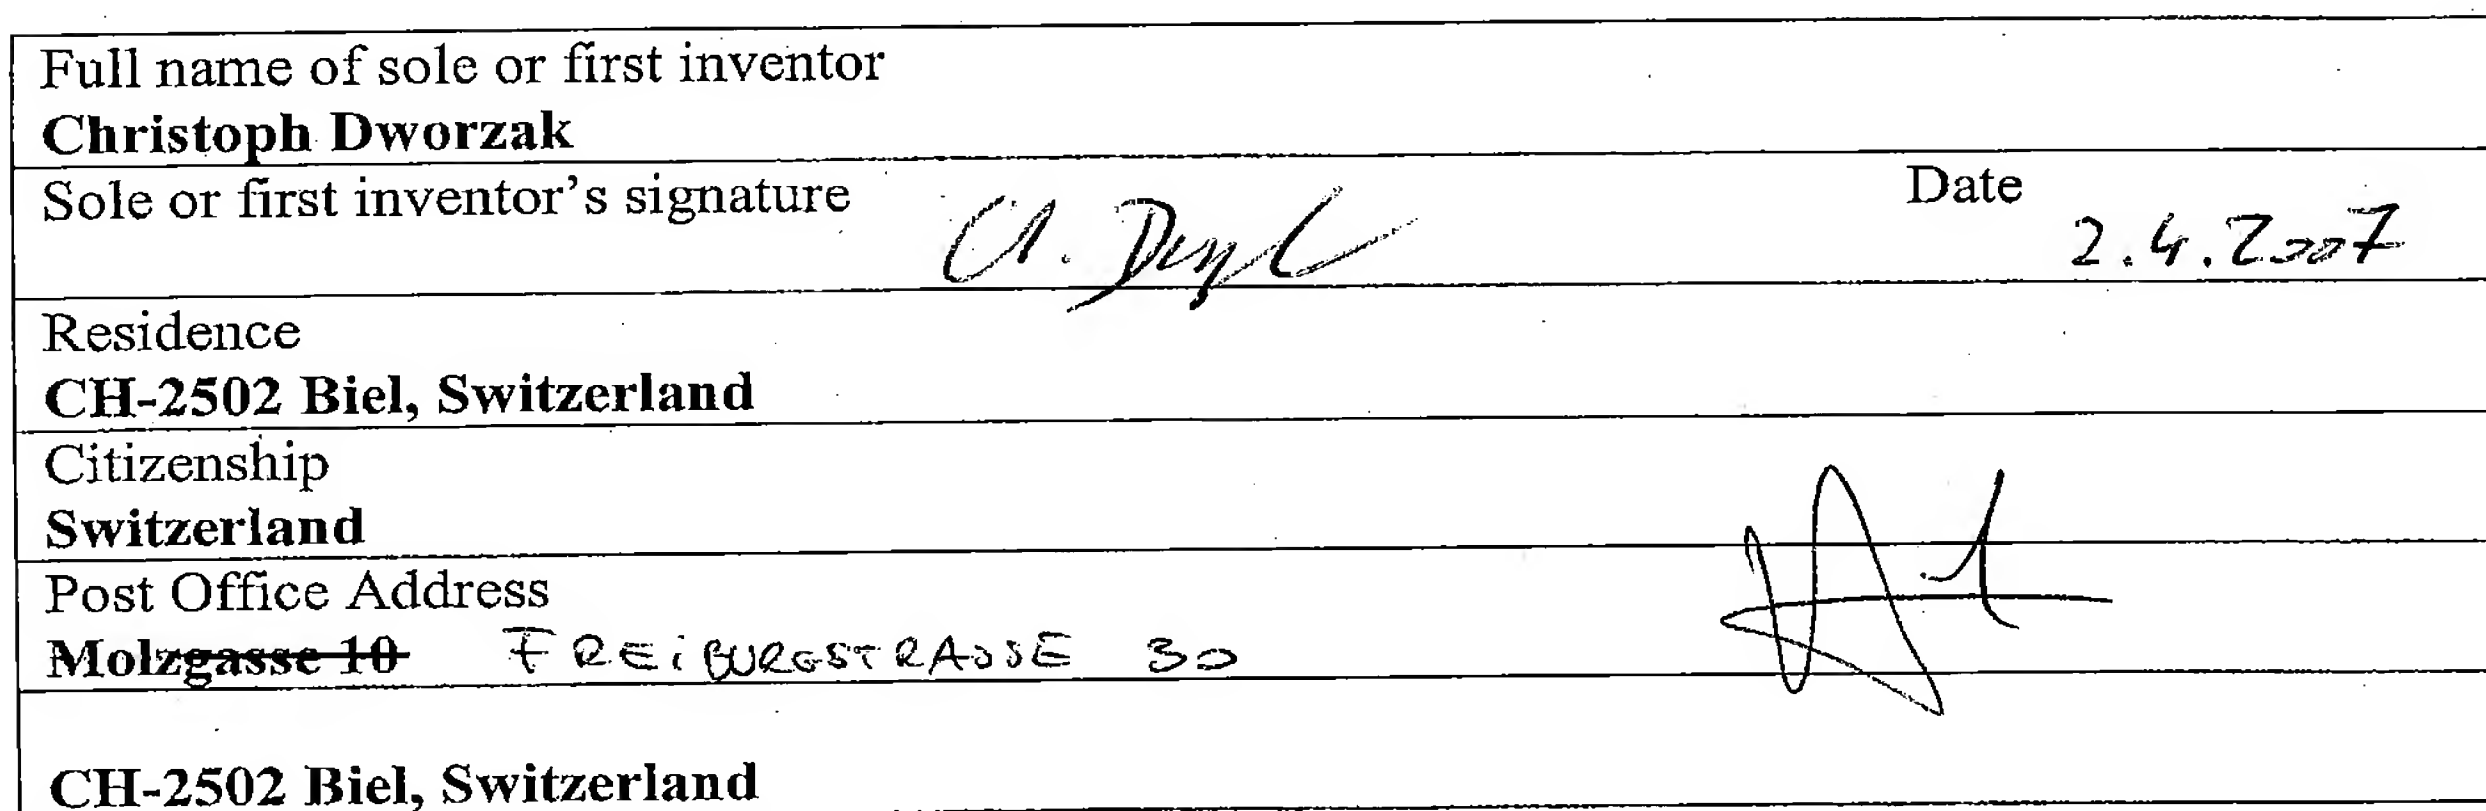 Full name of sole or first inventor
Christoph Dworzak
Sole or first inventor's signature Date
2.4.2007
Residence
CH-2502 Biel, Switzerland
Citizenship
Switzerland
Post Office Address
Molzgasse 10 FREiBURGSTRASSE 30
CH-2502 Biel, Switzerland